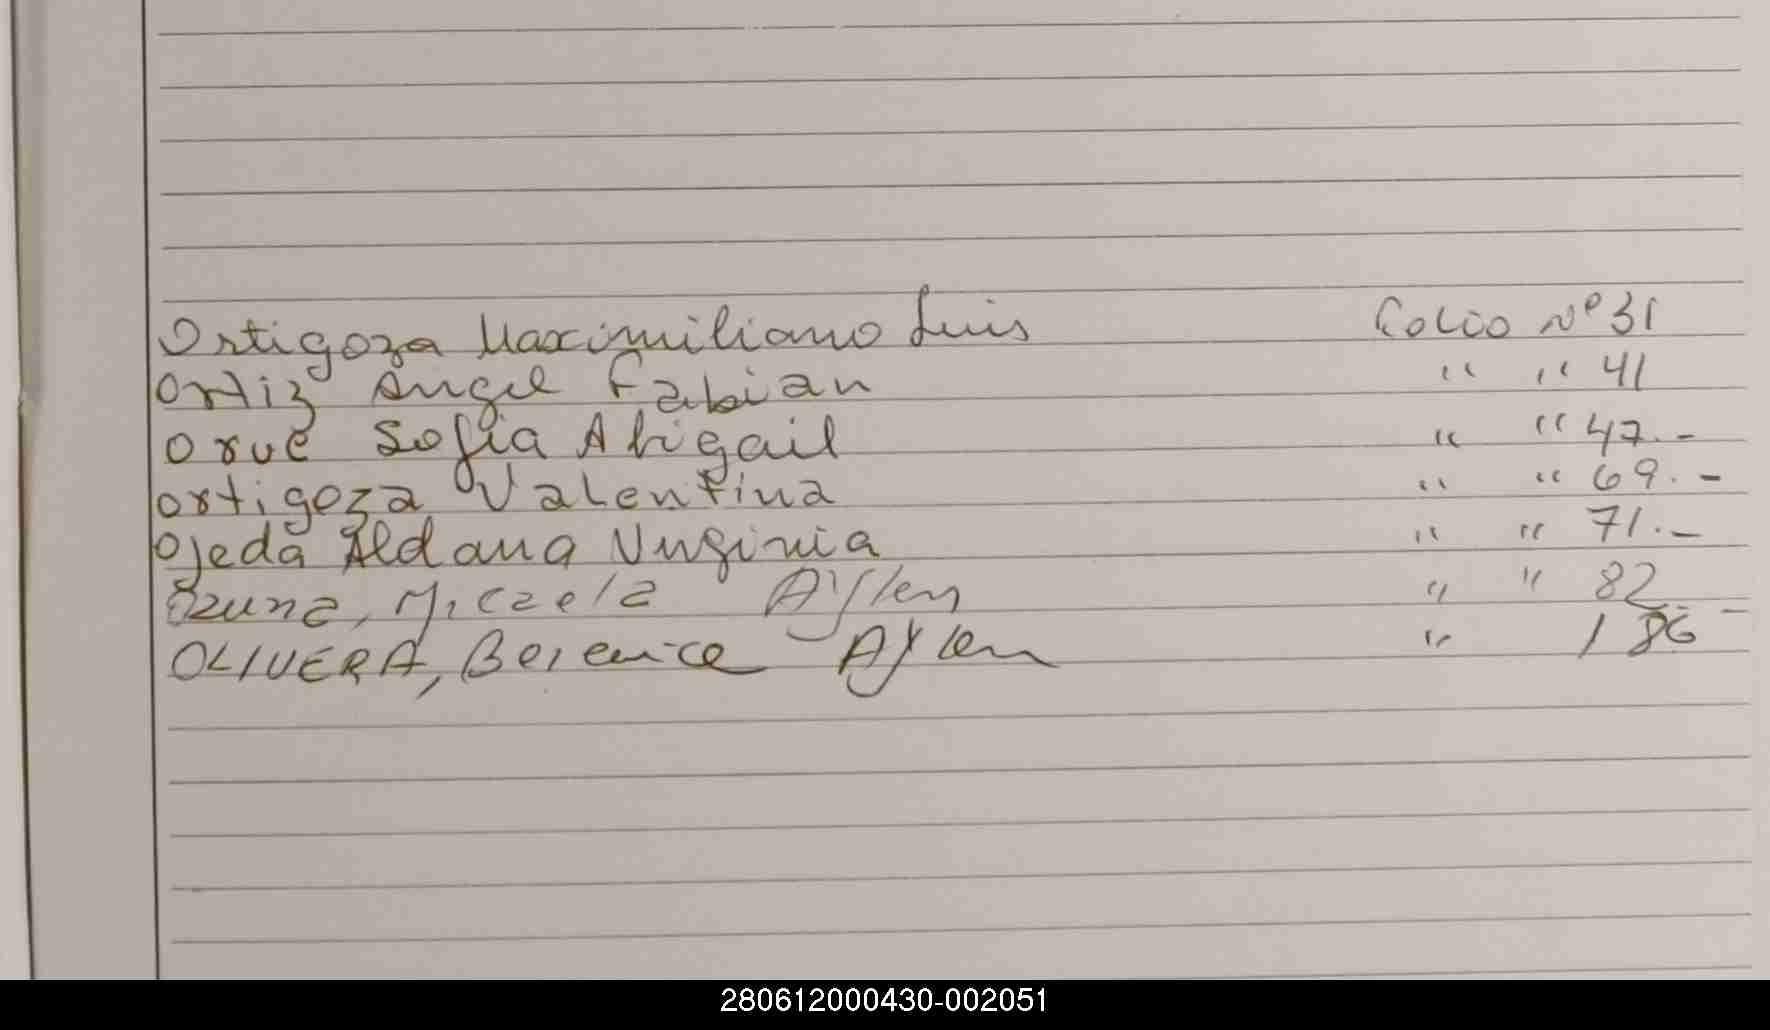 Ortigoza Maximiliano Luis Folio Nº 31
Ortiz Angel Fabian " " 41
Orué Sofia Abigail " " 47.-
Ortigoza Valentina " " 69.-
Ojeda Aldana Virginia " " 71.-
Ozuna, Micaela Aylen " " 82
OLIVERA, Berenice Aylen " / 86-
280612000430-002051